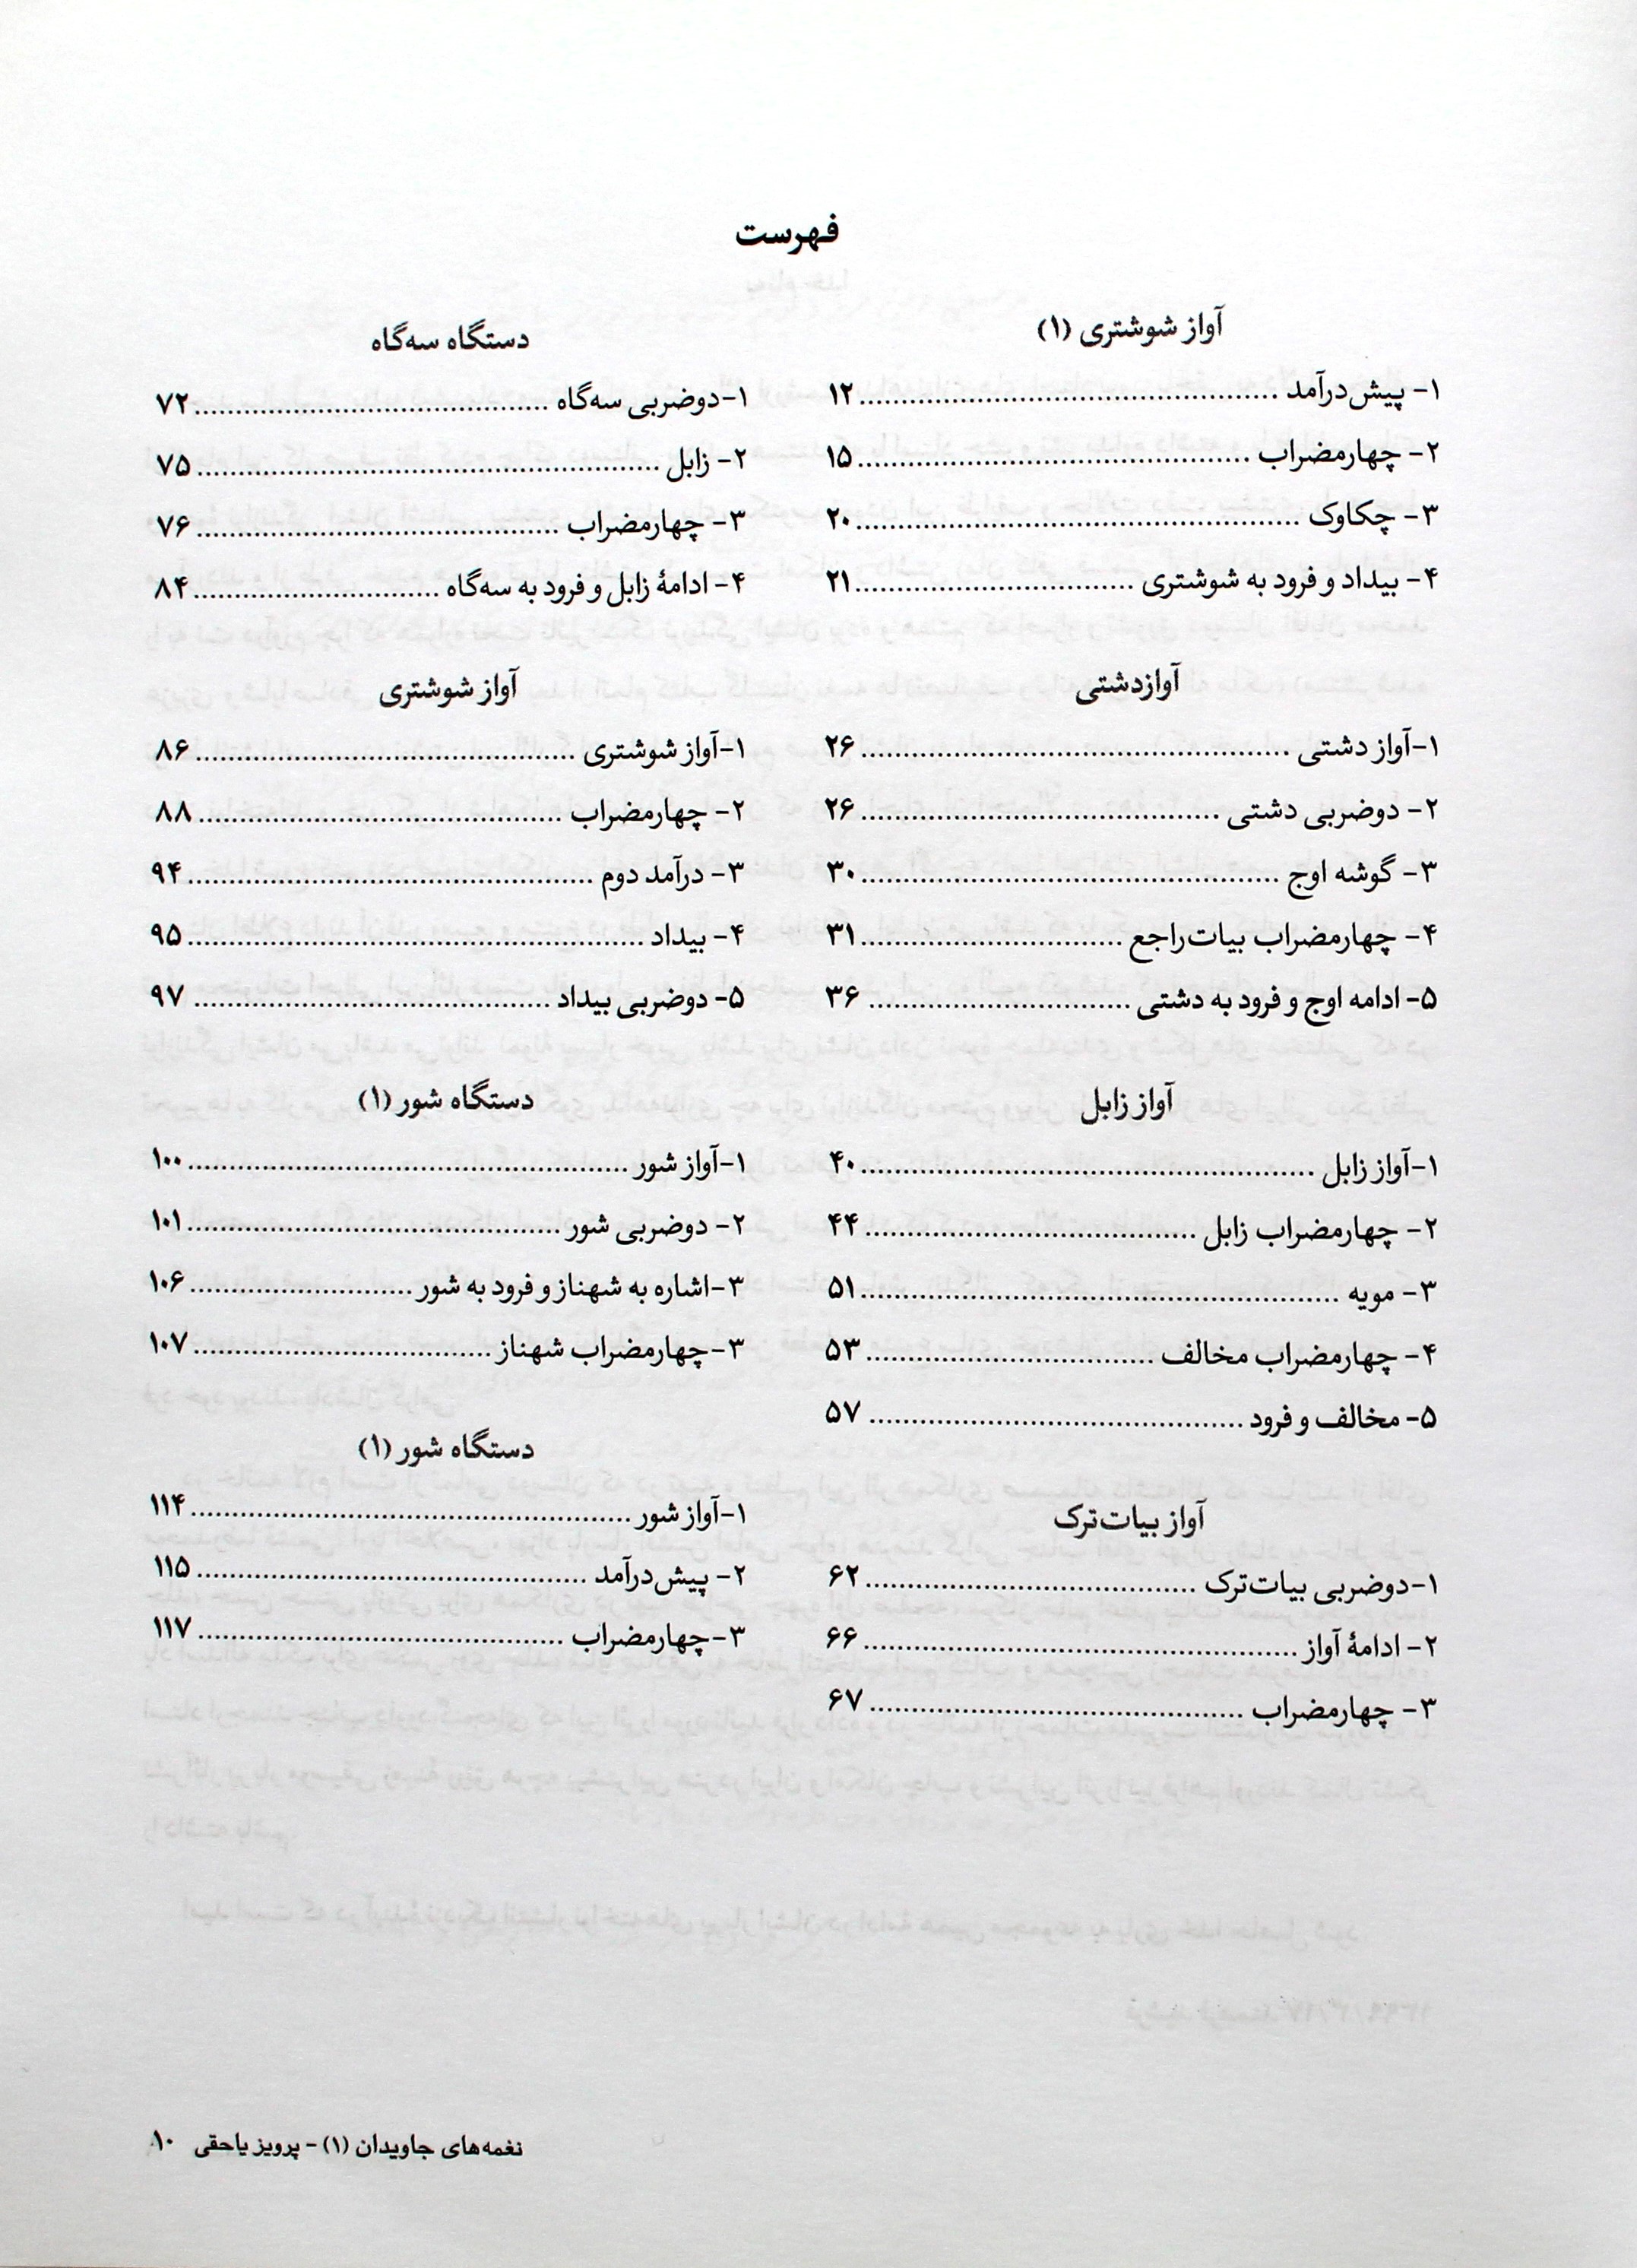 فهرست
آواز شوشتری (۱)
۱- پیش‌درآمد ........ ۱۲
۲- چهارمضراب ........ ۱۵
۳- چکاوک ........ ۲۰
۴- بیداد و فرود به شوشتری ........ ۲۱
آوازدشتی
۱-آواز دشتی ........ ۲۶
۲- دوضربی دشتی ........ ۲۶
۳- گوشه اوج ........ ۳۰
۴- چهارمضراب بیات‌راجع ........ ۳۱
۵- ادامه اوج و فرود به دشتی ........ ۳۶
آواز زابل
۱-آواز زابل ........ ۴۰
۲- چهارمضراب زابل ........ ۴۴
۳- مویه ........ ۵۱
۴- چهارمضراب مخالف ........ ۵۳
۵- مخالف و فرود ........ ۵۷
آواز بیات‌ترک
۱-دوضربی بیات‌ترک ........ ۶۲
۲- ادامهٔ آواز ........ ۶۶
۳- چهارمضراب ........ ۶۷
دستگاه سه‌گاه
۱-دوضربی سه‌گاه ........ ۷۲
۲- زابل ........ ۷۵
۳- چهارمضراب ........ ۷۶
۴- ادامهٔ زابل و فرود به سه‌گاه ........ ۸۴
آواز شوشتری
۱-آواز شوشتری ........ ۸۶
۲- چهارمضراب ........ ۸۸
۳- درآمد دوم ........ ۹۴
۴- بیداد ........ ۹۵
۵- دوضربی بیداد ........ ۹۷
دستگاه شور (۱)
۱-آواز شور ........ ۱۰۰
۲- دوضربی شور ........ ۱۰۱
۳-اشاره به شهناز و فرود به شور ........ ۱۰۶
۳-چهارمضراب شهناز ........ ۱۰۷
دستگاه شور (۱)
۱-آواز شور ........ ۱۱۴
۲- پیش‌درآمد ........ ۱۱۵
۳-چهارمضراب ........ ۱۱۷
نغمه‌های جاویدان (۱) - پرویز یاحقی ۱۰